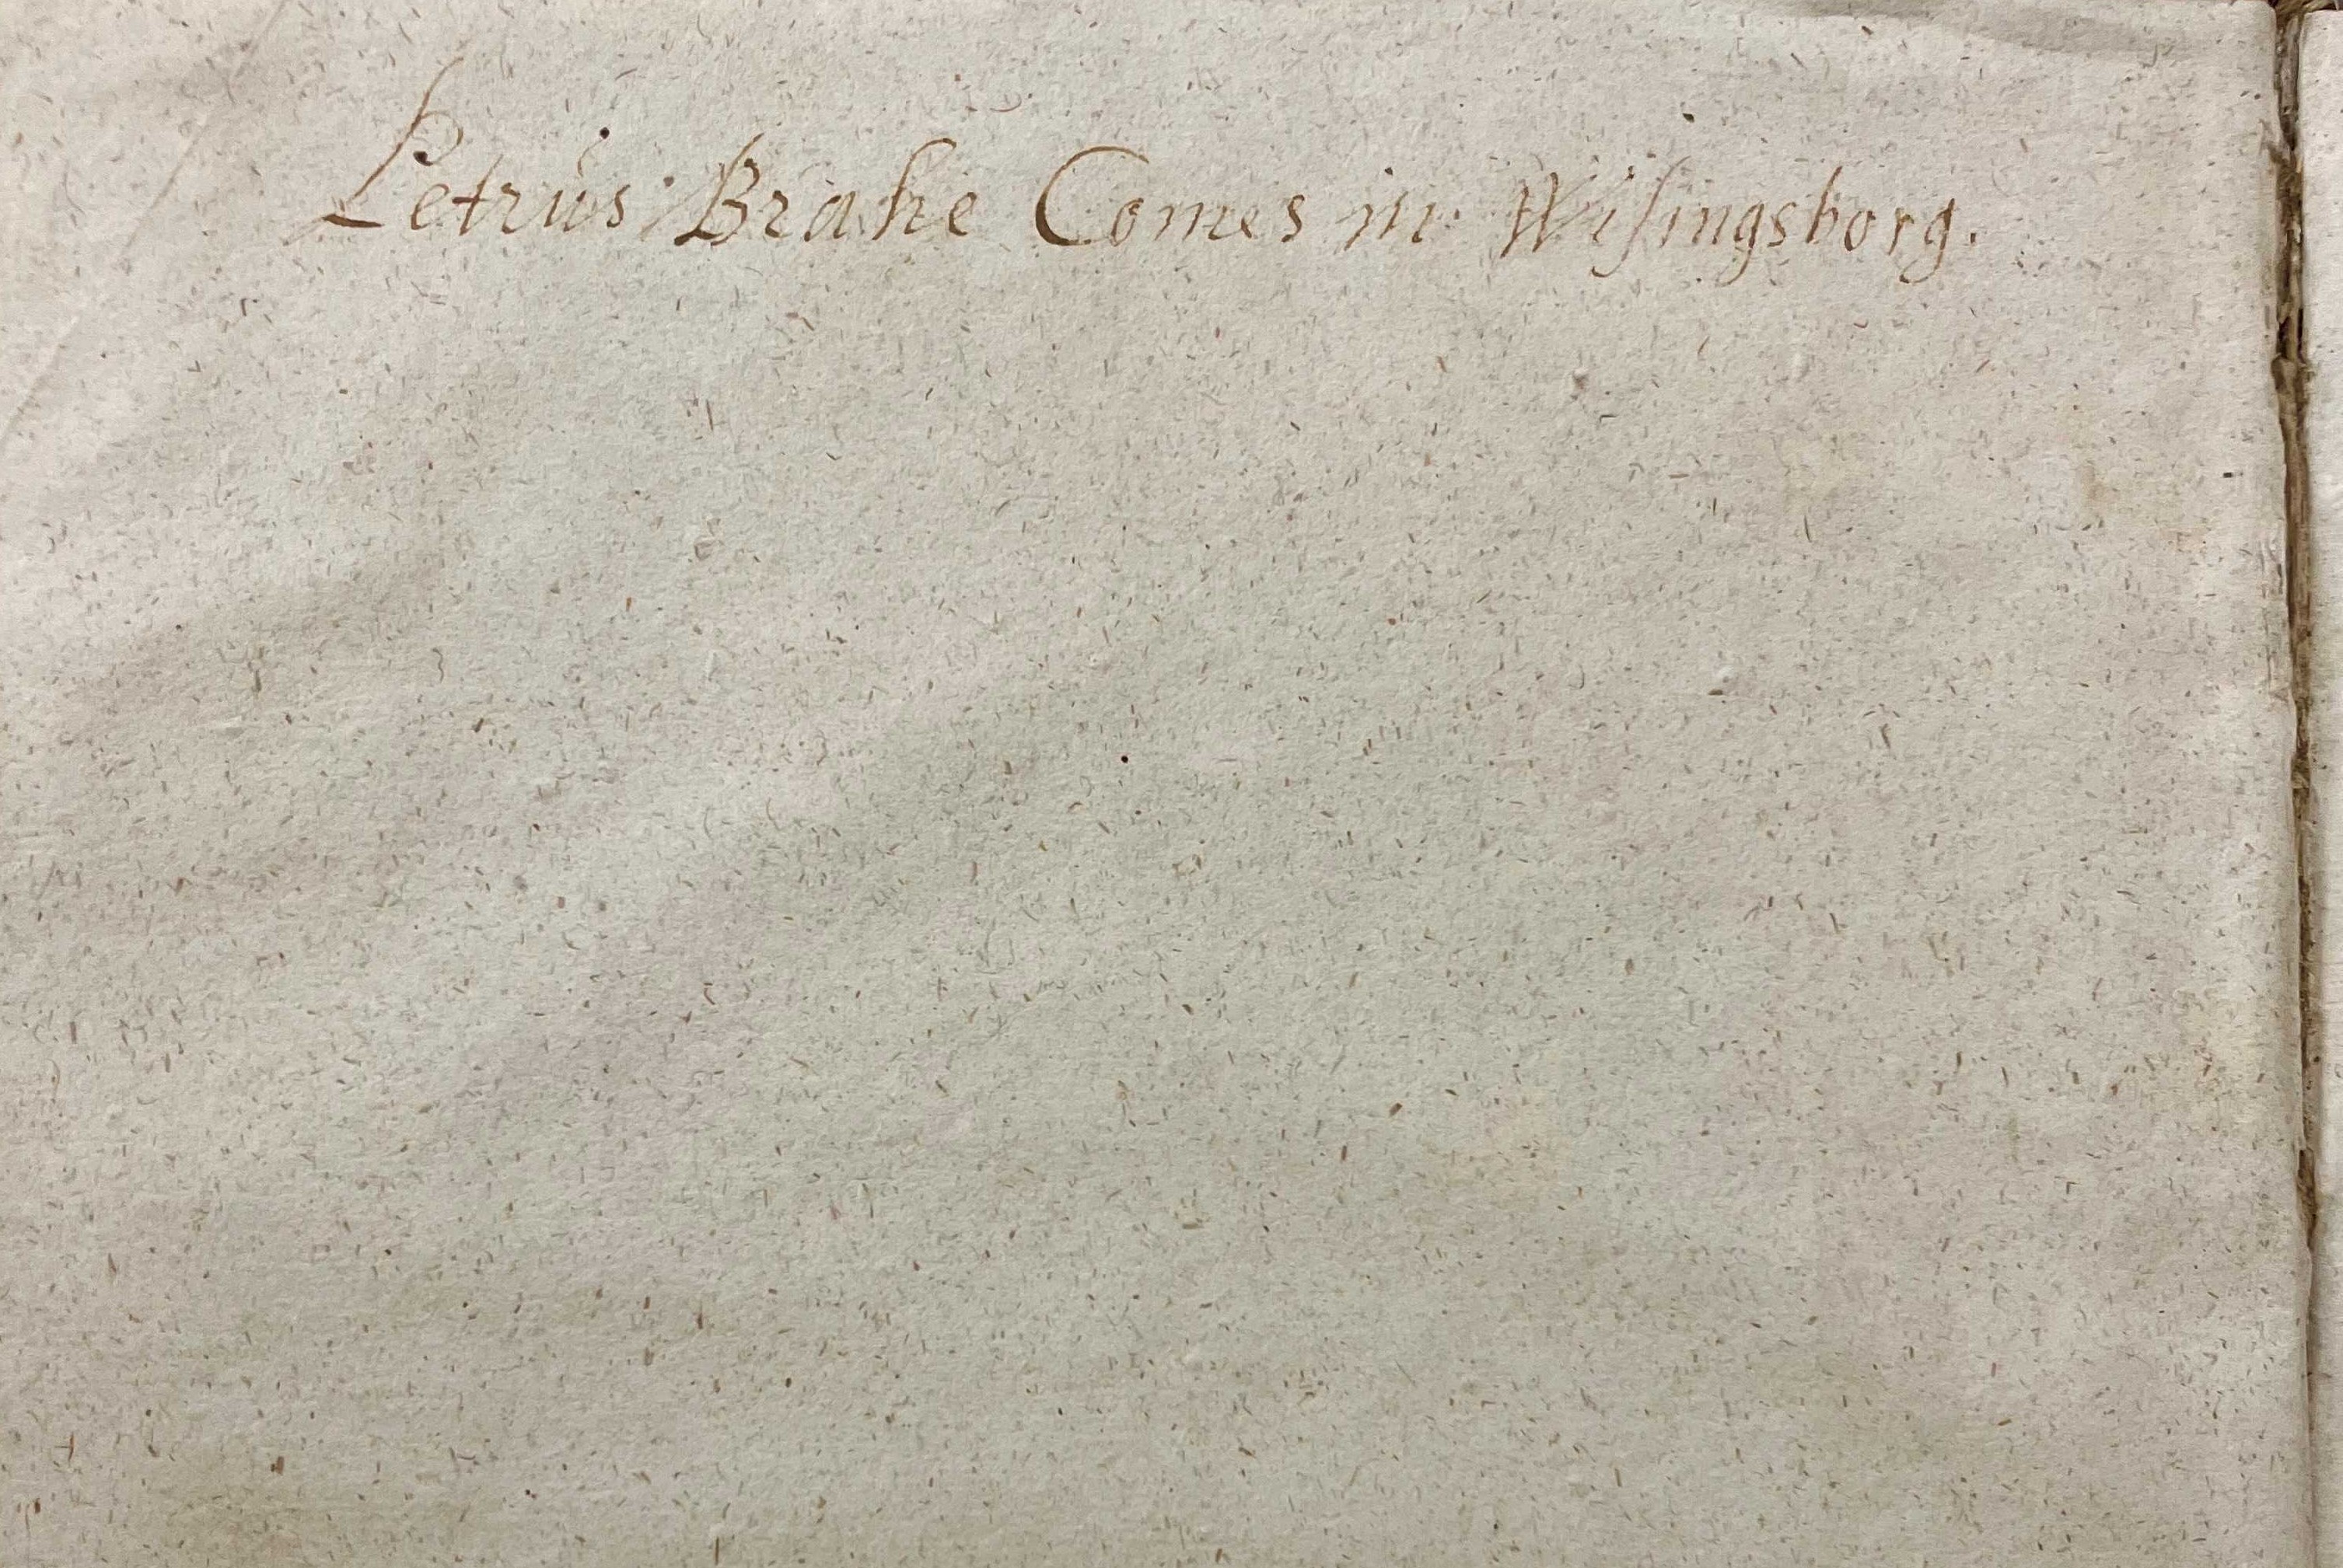 Petrus Brahe Comes in Wisingsborg.